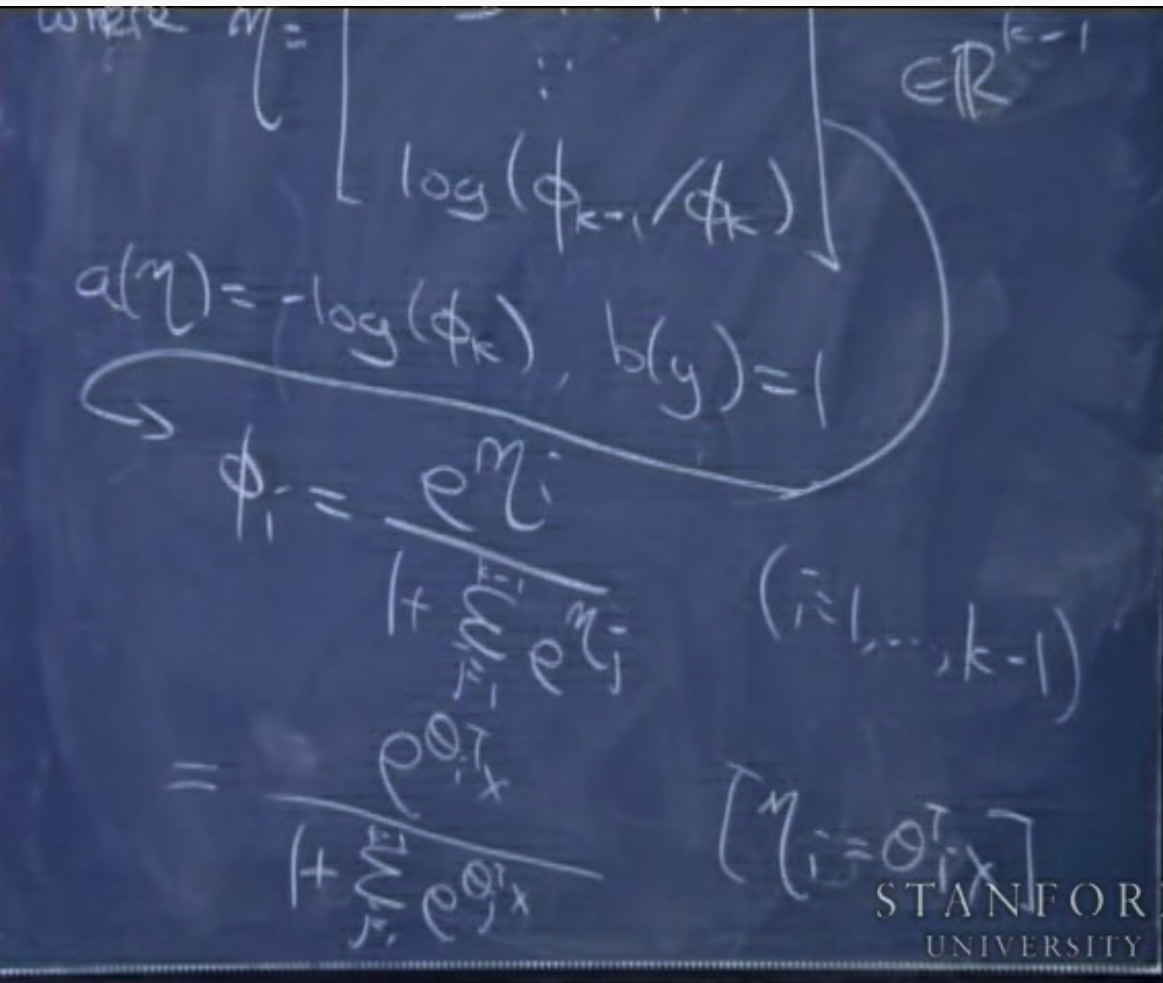 where η =
∈ℝ^{k-1}
⋮
log(φ_{k-1}/φ_k)
a(η) = -log(φ_k), b(y) = 1
φ_i = e^{η_i} / (1 + Σ_{j=1}^{k-1} e^{η_j}) (i=1,...,k-1)
= e^{θ_i^T x} / (1 + Σ_{j=1}^{k-1} e^{θ_j^T x}) [η_i = θ_i^T x]
STANFOR
UNIVERSITY